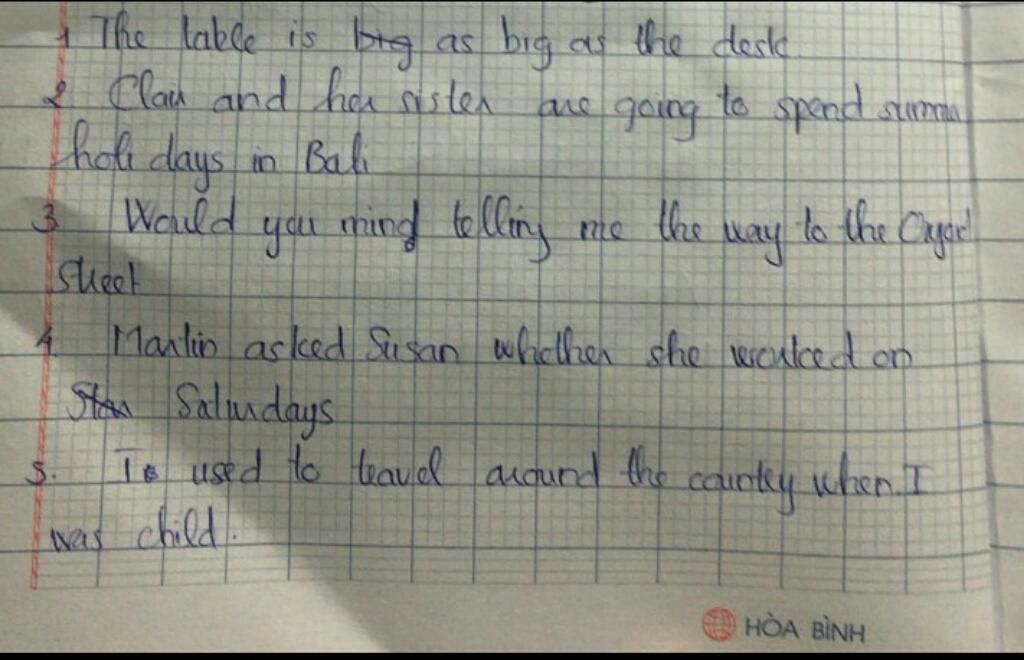 1 The table is big as big as the desk
2 Clara and her sister are going to spend summer
holidays in Bali
3 Would you mind telling me the way to the Oxford
Street
4 Martin asked Susan whether she worked on
Saturdays
5. I used to travel around the country when I
was child.
HÒA BÌNH